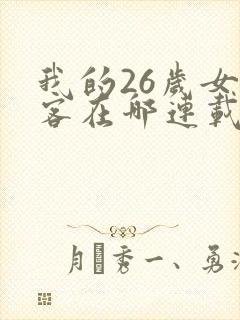 我的26歲女
客在哪連載
月秀一、勇